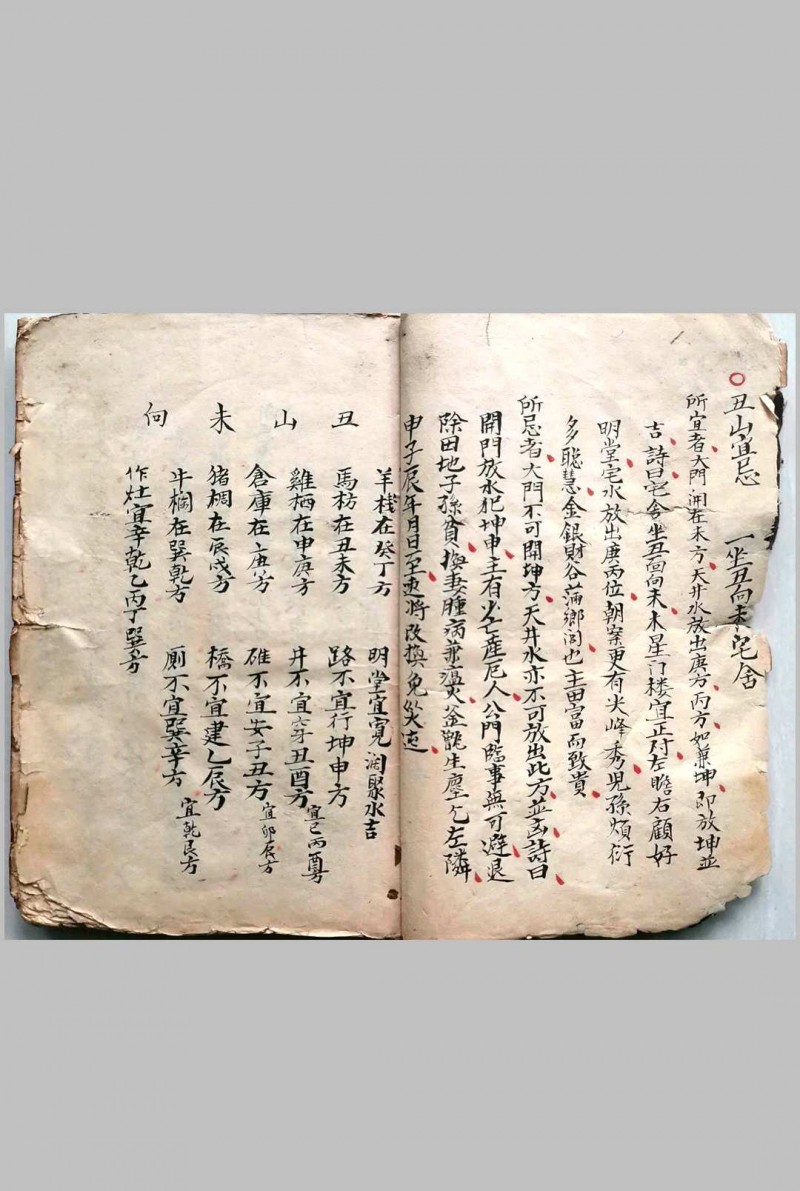 丑山宜忌 一坐丑向未宅舍
所宜者大門開在未方天井水放出庚方丙方如兼坤即放坤並
吉詩曰宅舍坐丑向未木星门楼宜正对左瞻右顧好
明堂宅水放出庚丙位朝案更有尖峰秀児孫煩衍
多聡慧金銀財谷蒲鄉闾也主田富而致貴
所忌者大門不可開坤方天井水亦不可放出此方並凶詩曰
開門放水犯坤申主有少亡産厄人公門臨事無可避退
除田地子孫貧換妻腫病兼瘟火釜甑生塵乞左隣
申子辰年月日至速将改換免災迍
丑山未向
羊棧在癸丁方 明堂宜寬濶聚水吉
馬枋在丑未方 路不宜行坤申方
雞栖在申庚方 井不宜穿丑酉方 宜巳丙酉方
倉庫在庚方 碓不宜安子丑方 宜卯辰方
猪椆在辰戌方 橋不宜建乙辰方
牛欄在巽乾方 厠不宜巽辛方 宜乾艮方
作灶宜辛乾乙丙丁巽方